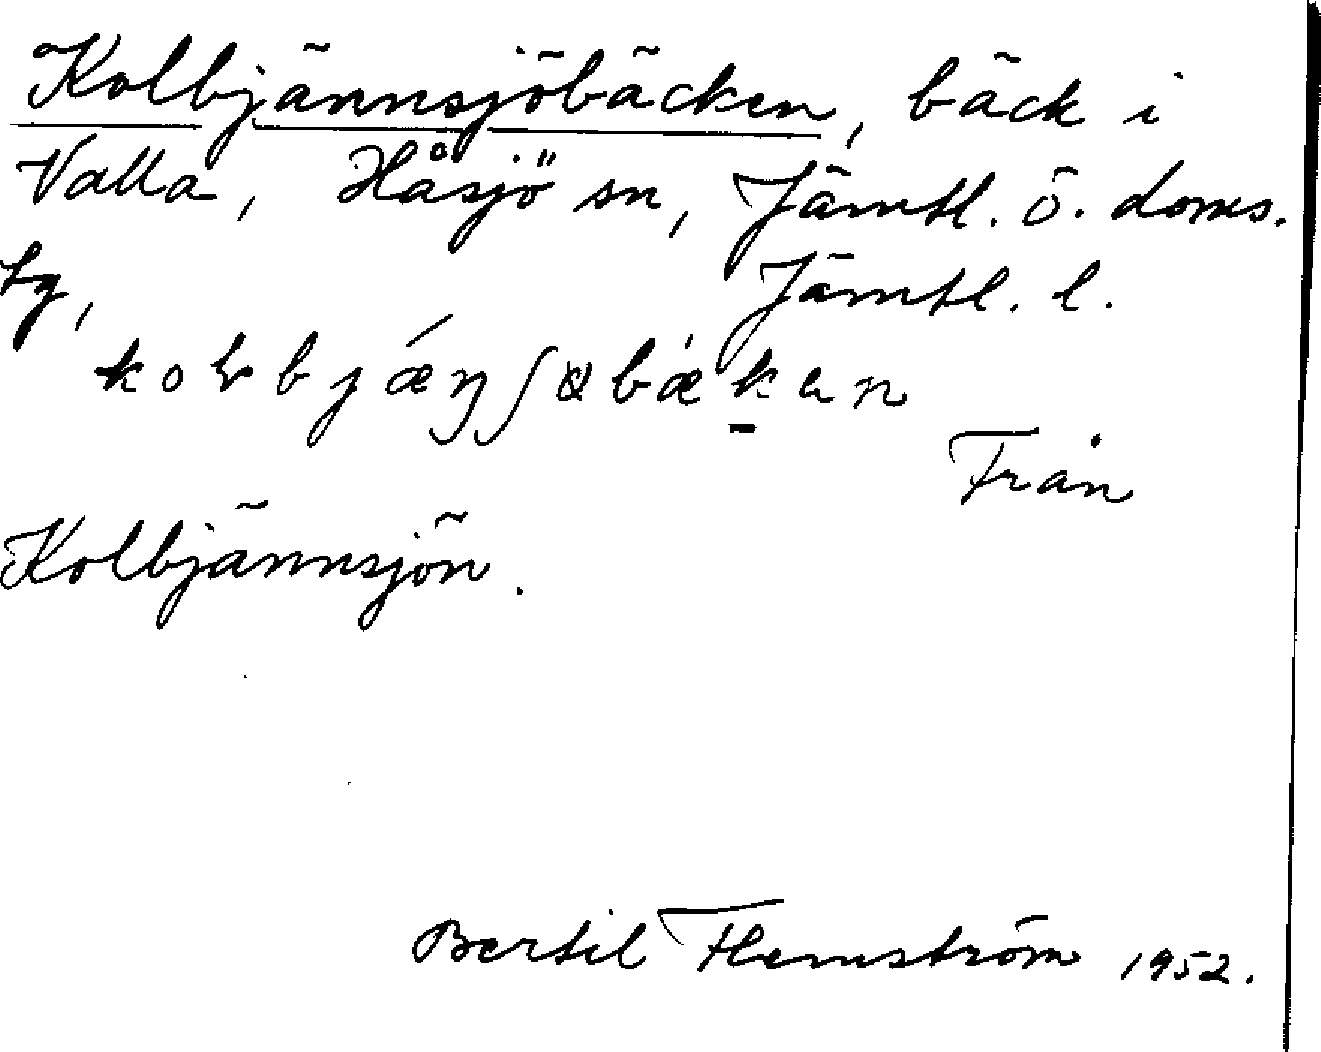 Kolbjännsjöbäcken, bäck i
Valla, Håsjö sn, Jämtl. ö. doms.
tg, Jämtl. l.
Från
Kolbjännsjön.
Bertil Flemström 1952.